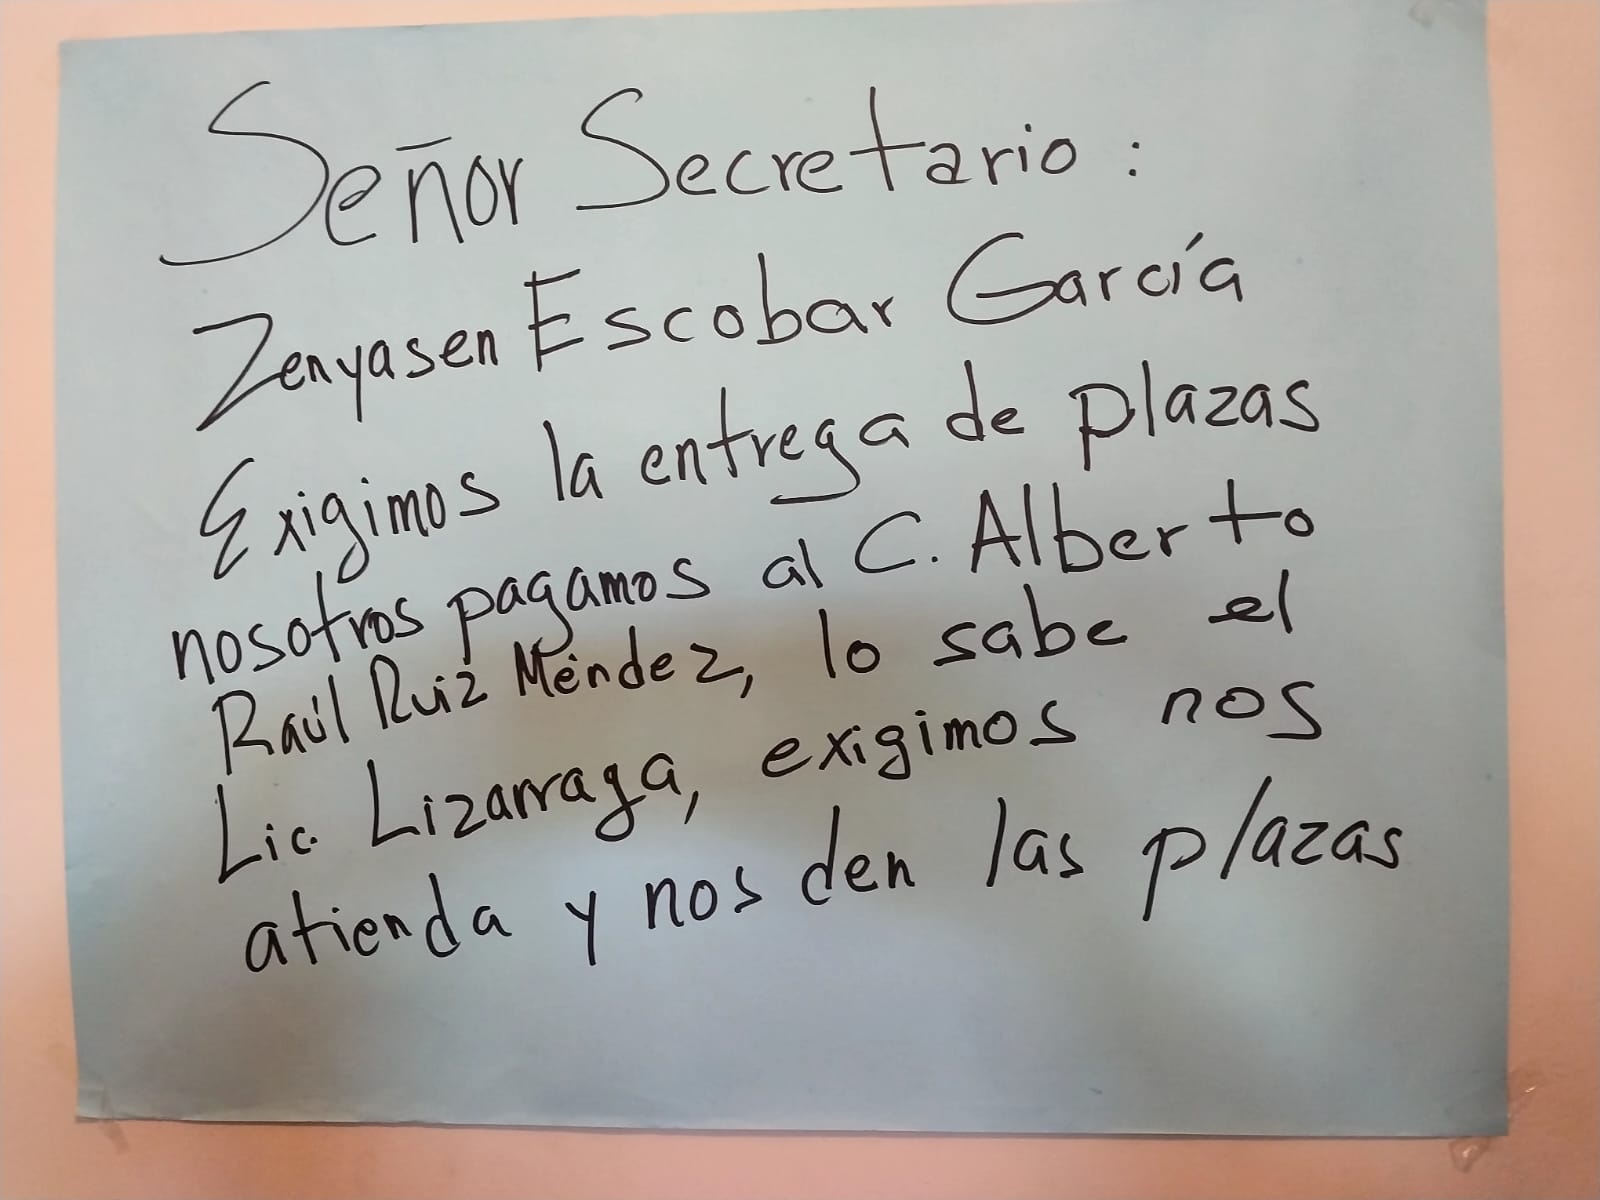 Señor Secretario:
Zenyasen Escobar García
Exigimos la entrega de plazas
nosotros pagamos al C. Alberto
Raúl Ruiz Méndez, lo sabe el
Lic. Lizarraga, exigimos nos
atienda y nos den las plazas